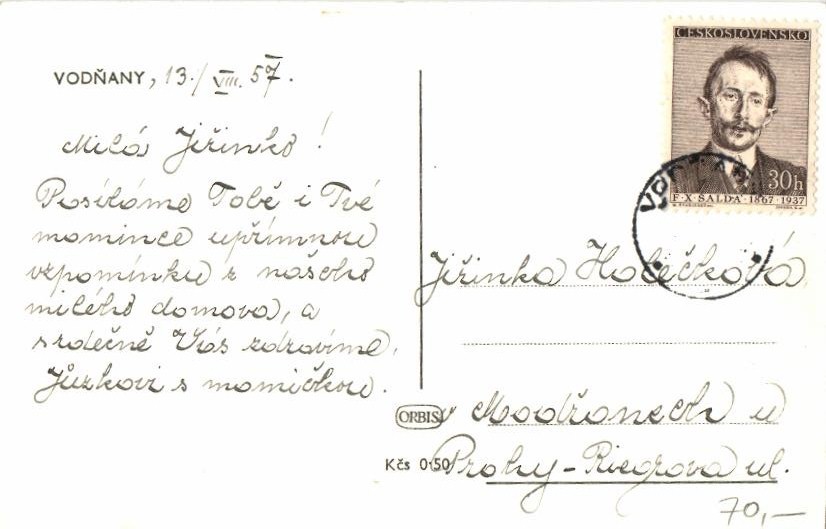 VODŇANY, 13./VIII. 57.
Milá Jiřinko!
Posíláme Tobě i Tvé
mamince upřímnou
vzpomínku z našeho
milého domova, a
srdečně Vás zdravíme.
s mamičkou.
ČESKOSLOVENSKO
30h
F·X·ŠALDA·1867·1937
VODŇANY
Jiřinka Holečková
v Modřanech u
Prahy-Riegrova ul.
ORBIS
Kčs 0·50
70,—